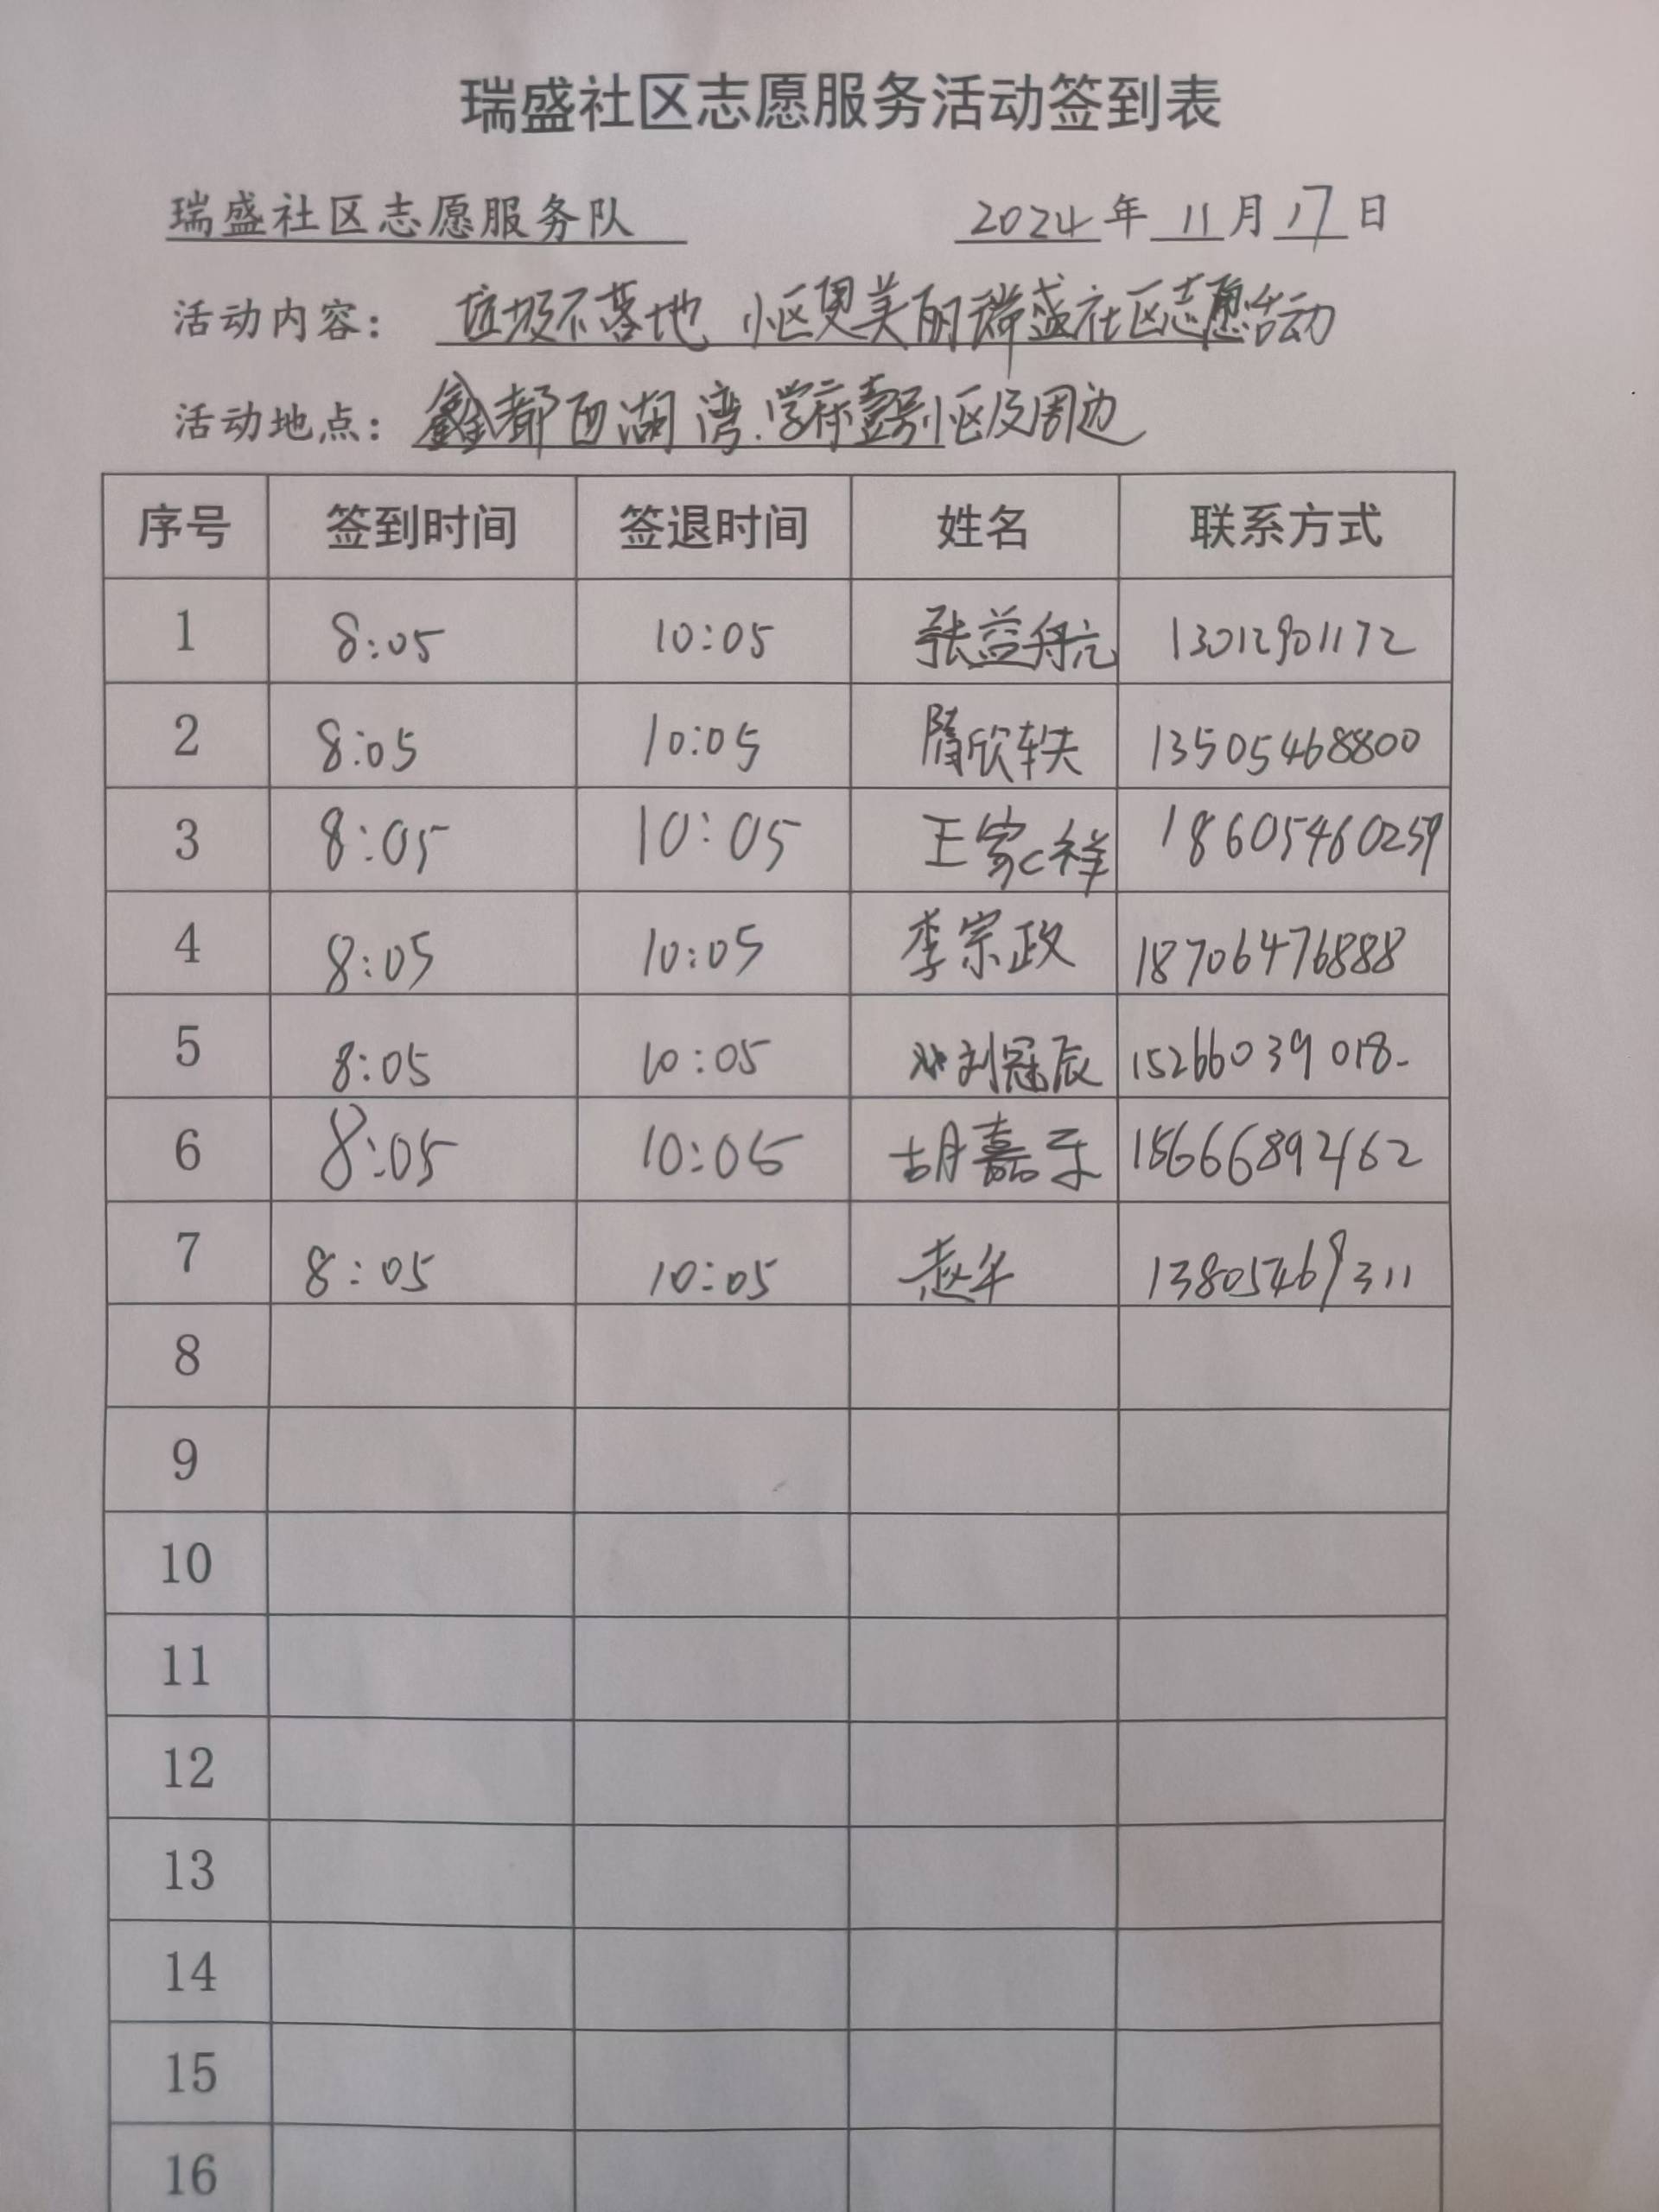 瑞盛社区志愿服务活动签到表
瑞盛社区志愿服务队 2024年 11月17日
活动内容: 垃圾不落地 小区更美丽瑞盛社区志愿活动
活动地点: 鑫都西湖湾.学府壹号小区及周边
序号 签到时间 签退时间 姓名 联系方式
1 8:05 10:05 张益航 13012901172
2 8:05 10:05 隋欣轶 13505468800
3 8:05 10:05 王家祥 18605460259
4 8:05 10:05 李宗政 18706476888
5 8:05 10:05 刘冠辰 15266039018
6 8:05 10:05 胡嘉 15666892462
7 8:05 10:05 赵 13805469311
8
9
10
11
12
13
14
15
16